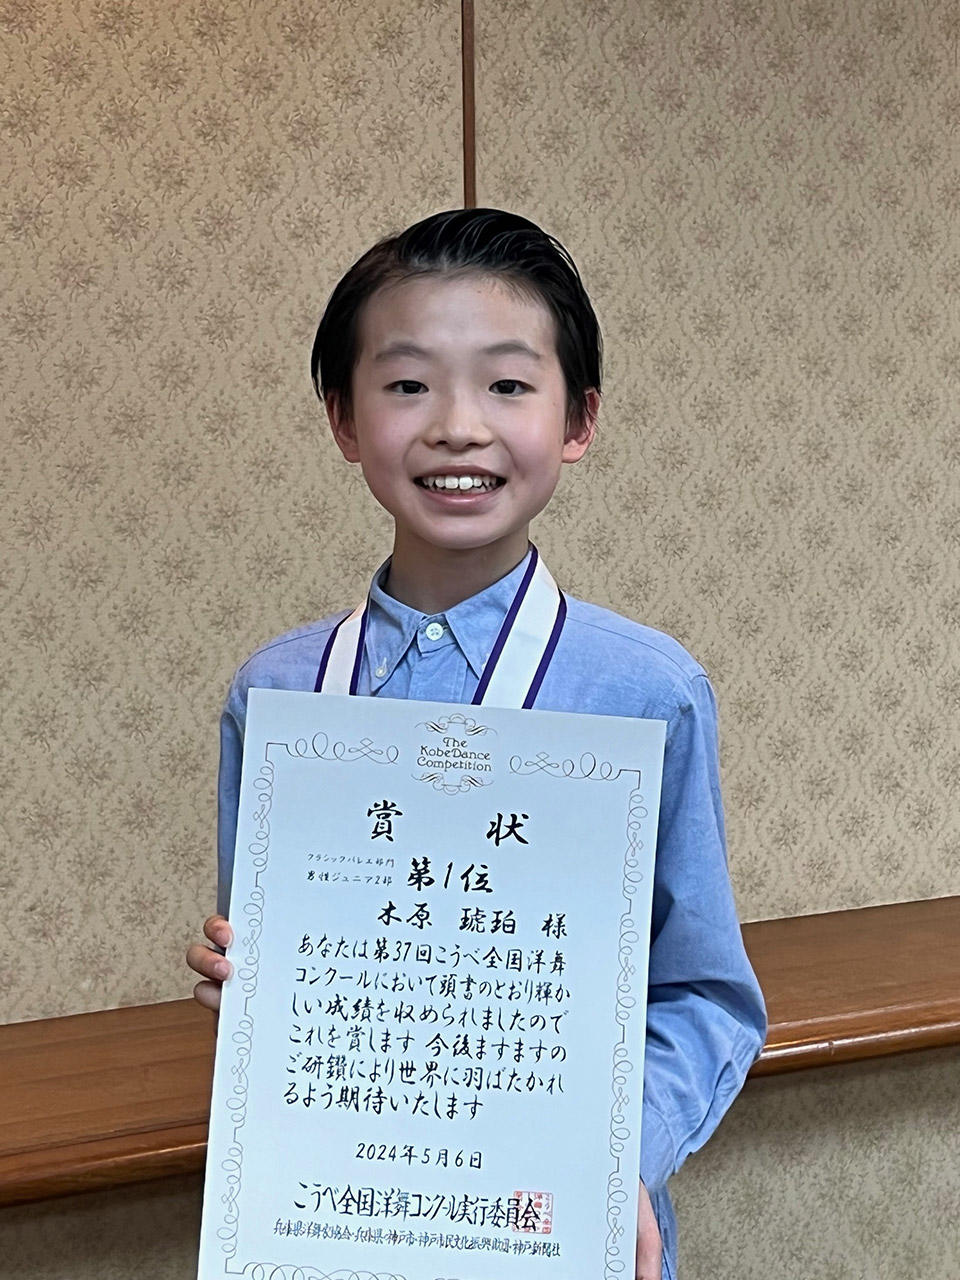 The
Kobe Dance
Competition
賞 状
クラシックバレエ部門
男性ジュニア2部 第1位
木原 琥珀 様
あなたは第37回こうべ全国洋舞
コンクールにおいて頭書のとおり輝か
しい成績を収められましたので
これを賞します 今後ますますの
ご研鑽により世界に羽ばたかれ
るよう期待いたします
2024年5月6日
こうべ全国洋舞コンクール実行委員会
兵庫県洋舞家協会・兵庫県・神戸市・神戸市民文化振興財団・神戸新聞社